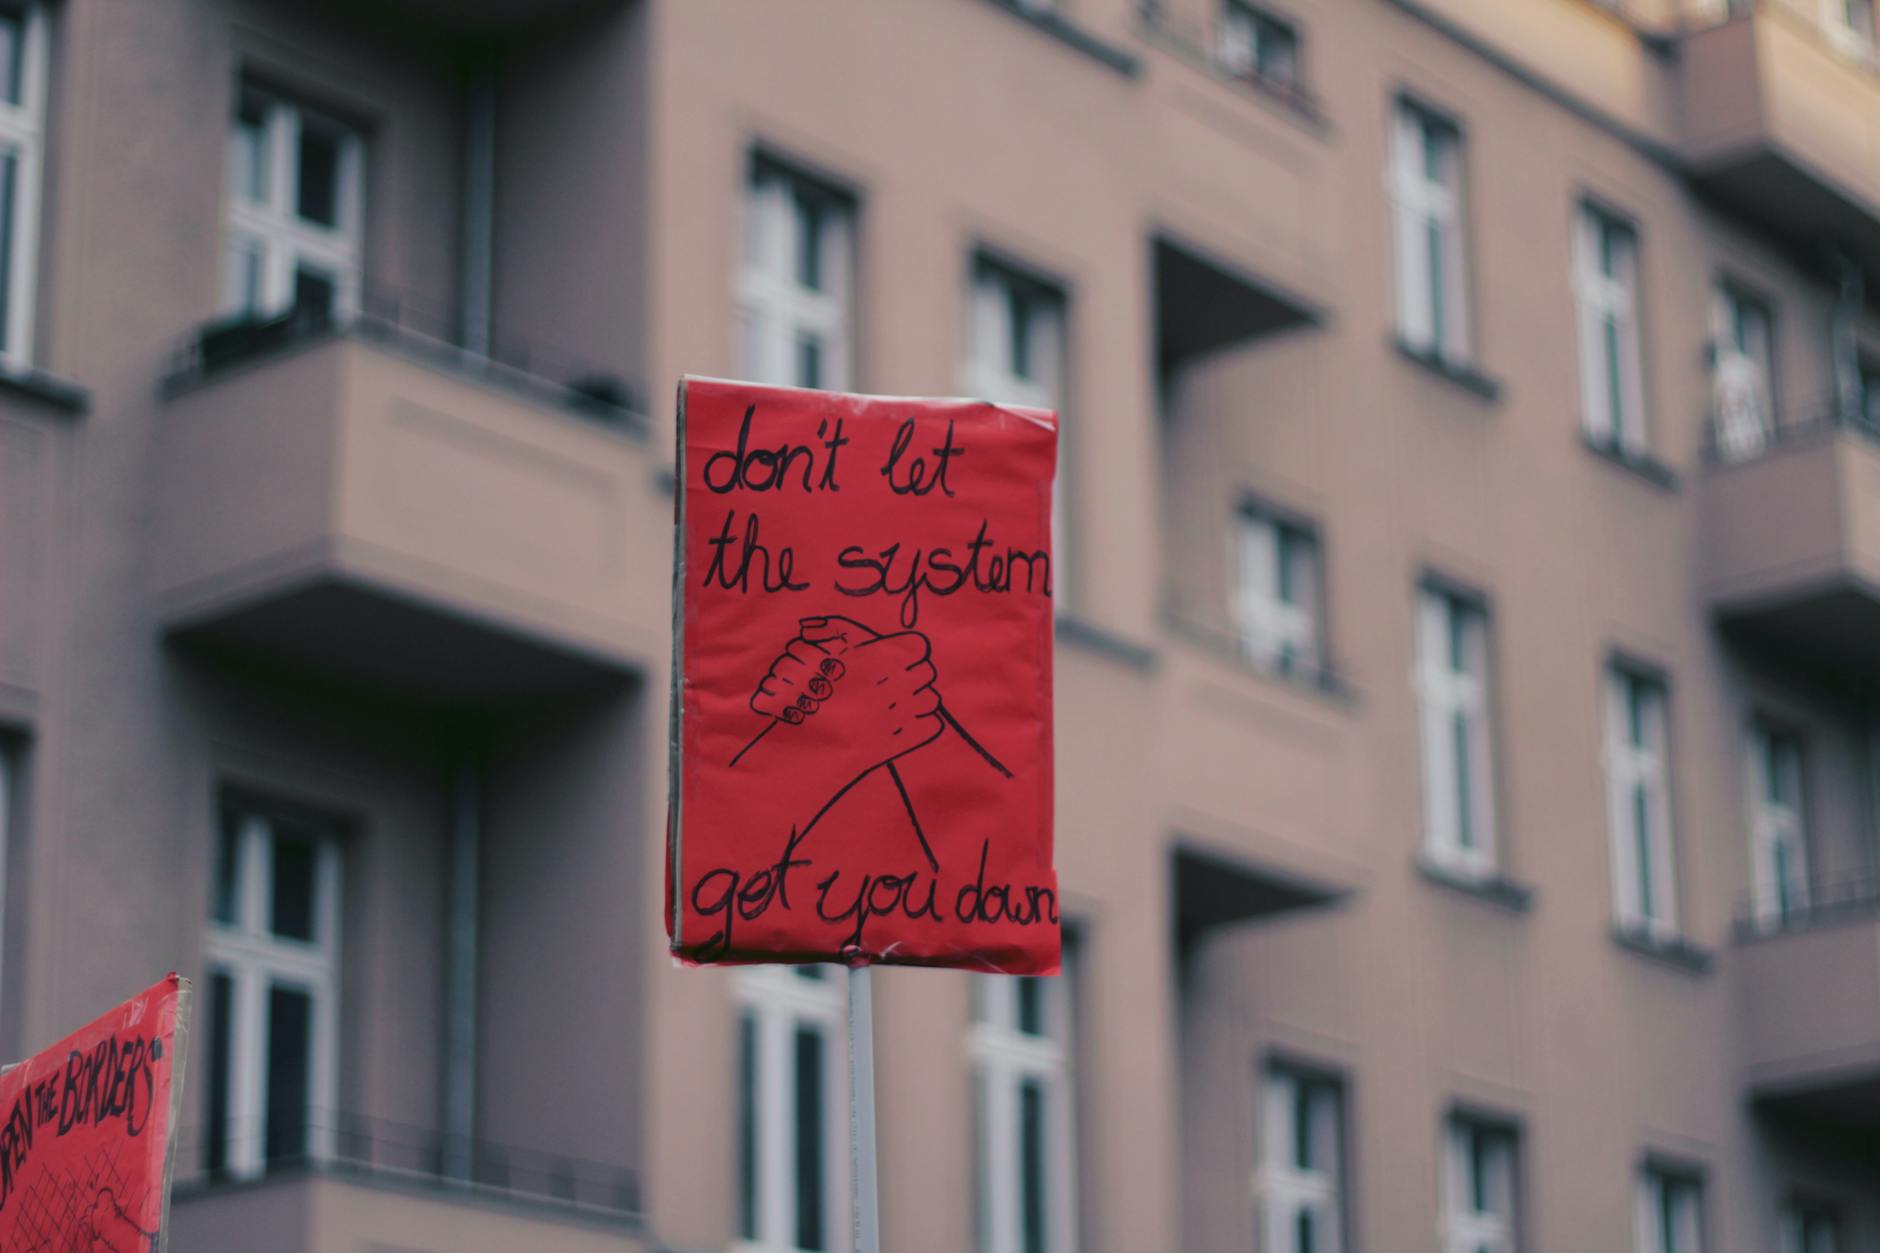 don't let
the system
get you down
THE BORDERS